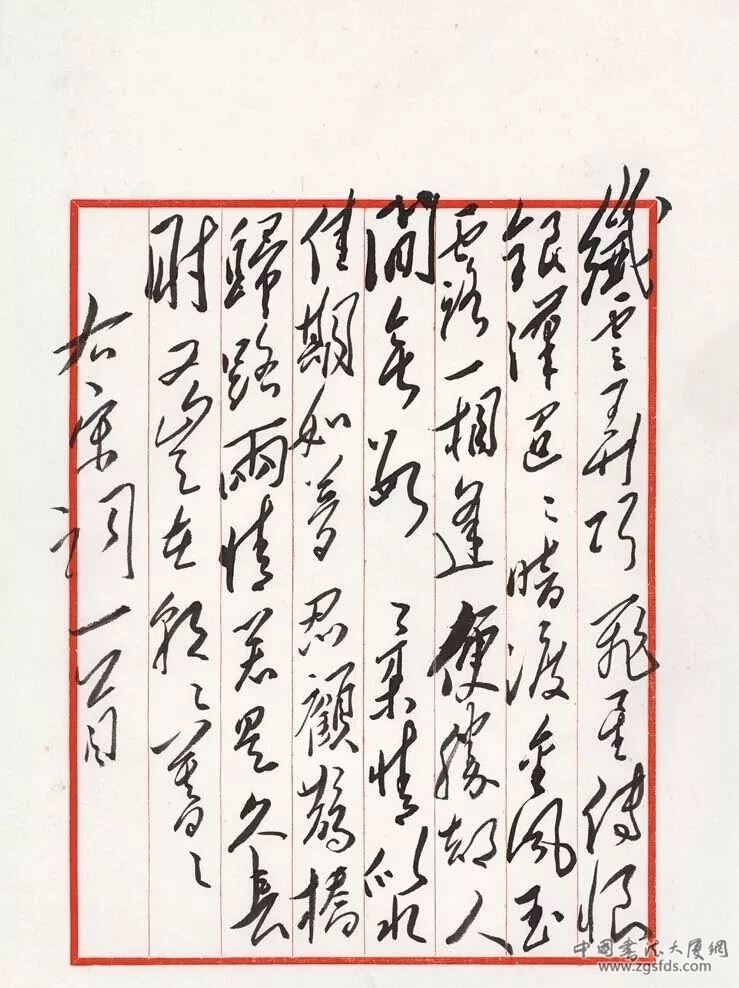 纖雲弄巧飛星傳恨
銀漢迢〻暗渡金風玉
露一相逢便勝却人
間無數柔情似水
佳期如夢忍顧鵲橋
歸路兩情若是久長
時又豈在朝〻暮〻
右宋詞一首
中國書法大厦網
www.zgsfds.com